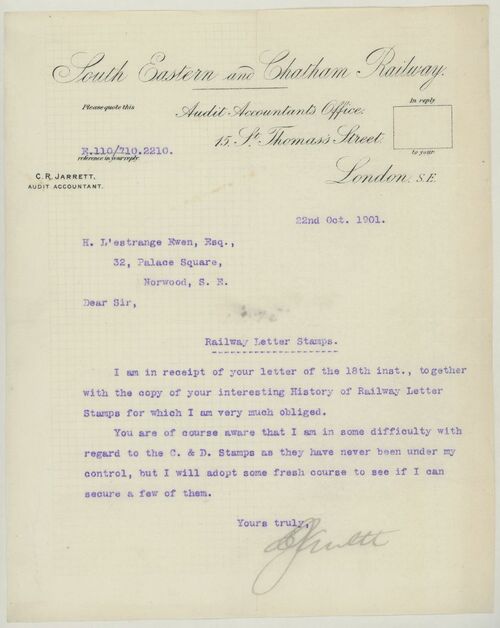 South Eastern and Chatham Railway.
Please quote this
Audit Accountants Office.
In reply
15, St. Thomas's Street.
E.110/710.2210.
reference in your reply
to your
C. R. JARRETT,
AUDIT ACCOUNTANT.
London. S.E.
22nd Oct. 1901.
H. L'estrange Ewen, Esq.,
32, Palace Square,
Norwood, S. E.
Dear Sir,
Railway Letter Stamps.
I am in receipt of your letter of the 18th inst., together
with the copy of your interesting History of Railway Letter
Stamps for which I am very much obliged.
You are of course aware that I am in some difficulty with
regard to the C. & D. Stamps as they have never been under my
control, but I will adopt some fresh course to see if I can
secure a few of them.
Yours truly,